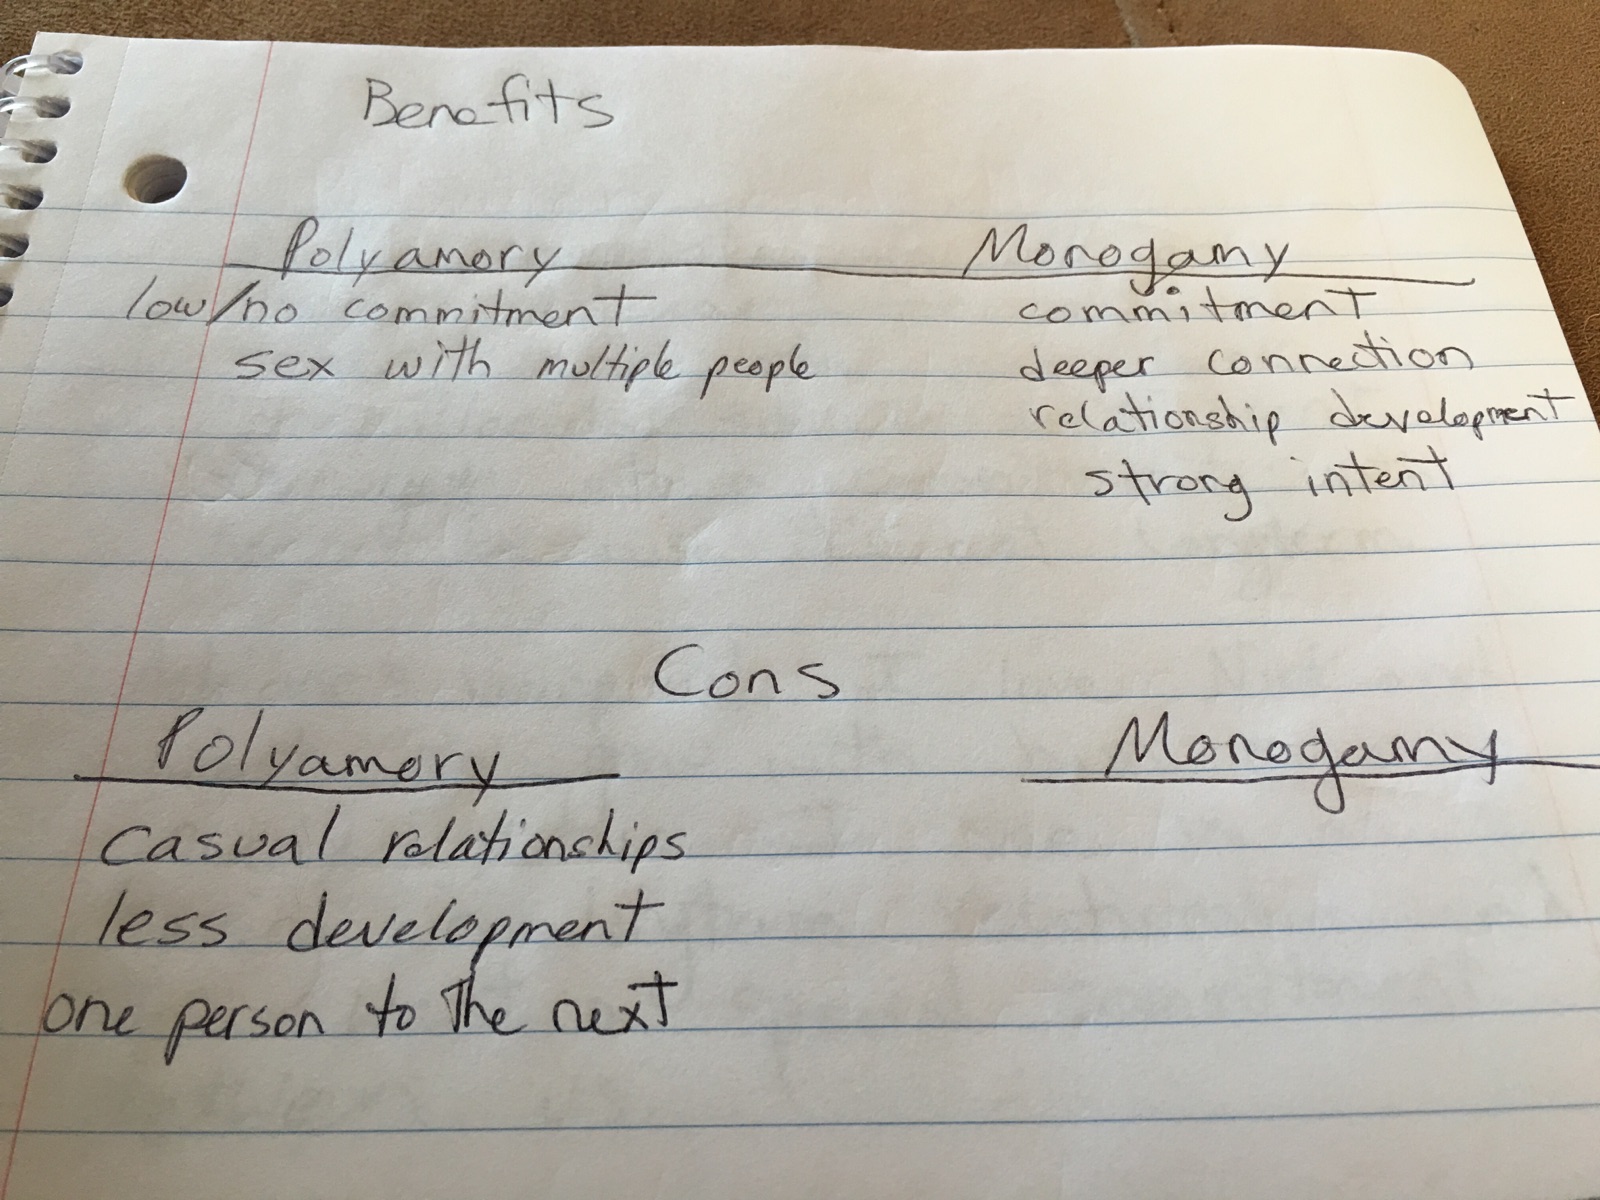 Benefits
Polyamory Monogamy
low/no commitment commitment
sex with multiple people deeper connection
relationship development
strong intent
Cons
Polyamory Monogamy
casual relationships
less development
one person to the next